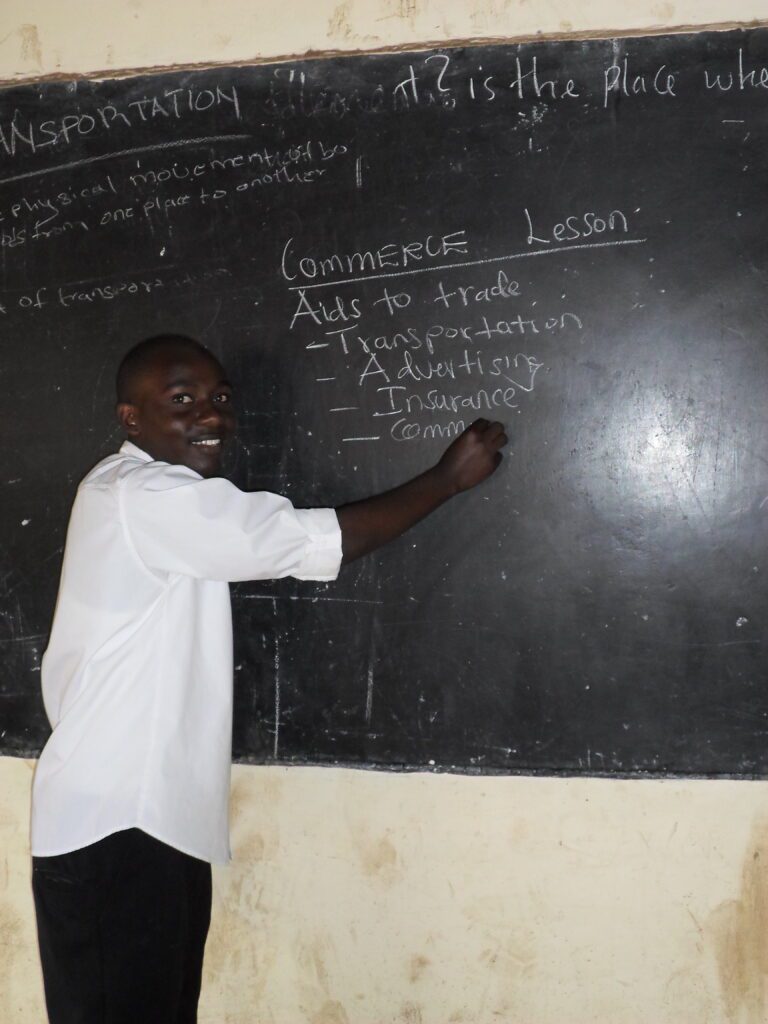 ANSPORTATION
t? is the place whe
physical movement of bo
ds from one place to another
t of transportation
COMMERCE Lesson
Aids to trade
- Transportation
- Advertising
- Insurance
- Comm